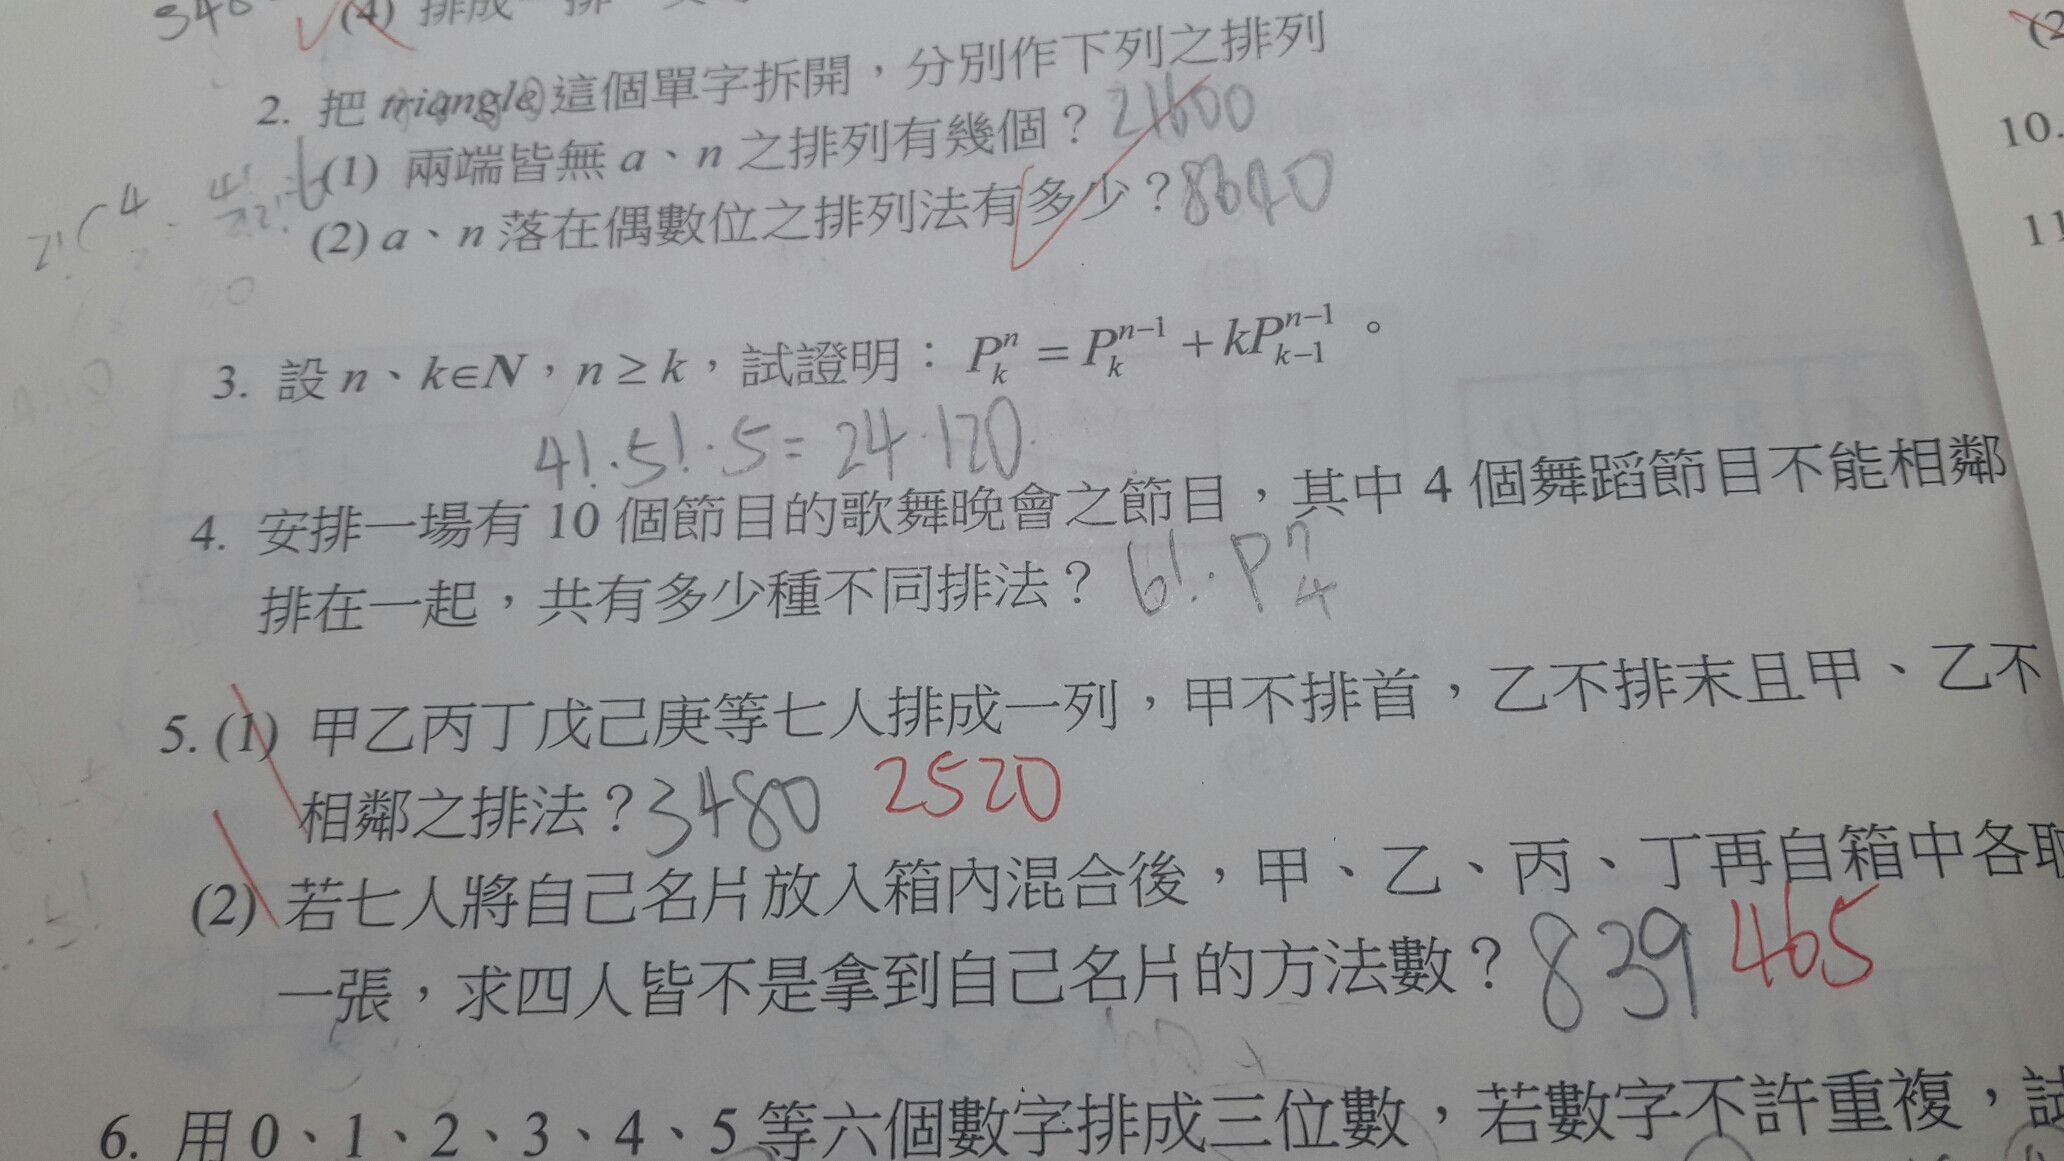 (4) 排成一排
2. 把 triangle 這個單字拆開，分別作下列之排列
(1) 兩端皆無 a、n 之排列有幾個？21600
(2) a、n 落在偶數位之排列法有多少？8640
3. 設 n、k∈N，n ≥ k，試證明：P^n_k = P^{n-1}_k + kP^{n-1}_{k-1}。
4!·5!·5=24·120
4. 安排一場有 10 個節目的歌舞晚會之節目，其中 4 個舞蹈節目不能相鄰
排在一起，共有多少種不同排法？6!·P^7_4
5. (1) 甲乙丙丁戊己庚等七人排成一列，甲不排首，乙不排末且甲、乙不
相鄰之排法？3480 2520
(2) 若七人將自己名片放入箱內混合後，甲、乙、丙、丁再自箱中各取
一張，求四人皆不是拿到自己名片的方法數？839 465
6. 用 0、1、2、3、4、5 等六個數字排成三位數，若數字不許重複，試
10.
11